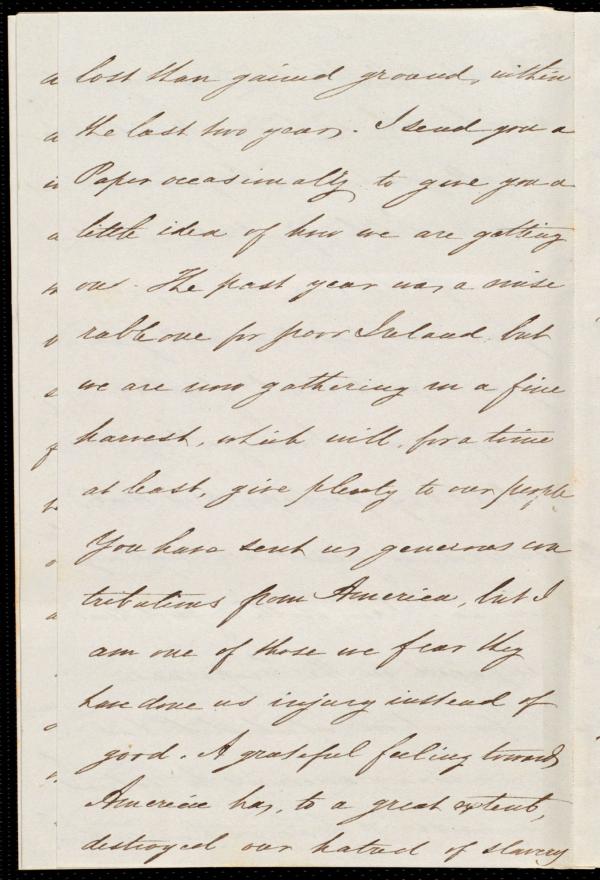 lost than gained ground, within
the last two years. I send you a
Paper occasionally, to give you a
little idea of how we are getting
on. The past year was a mise
rable one for poor Ireland, but
we are now gathering in a fine
harvest, which will, for a time
at least, give plenty to our people
You have sent us generous con
tributions from America, but I
am one of those we fear they
have done us injury instead of
good. A grateful feeling towards
America has, to a great extent,
destroyed our hatred of slavery